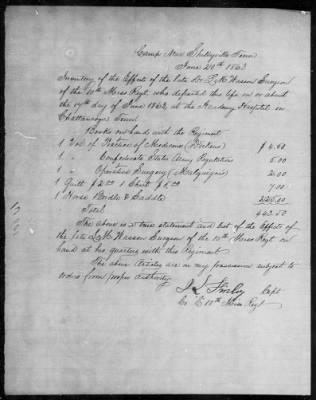 Camp Near Shelbyville Tenn
June 20th 1863
Inventory of the Effects of the late Dr L. K. Wasson Surgeon
of the 10th Miss Regt who departed this life on or about
the 17th day of June 1863, at the Academy Hospital in
Chattanooga Tenn
Books on hand with the Regiment
1 Vol of Practice of Medicine $ 4.50
1 " Confederate States Army Regulations 5.00
1 " Operative Surgery 2.00
1 Quilt $2.00 1 Shirt $5.00 7.00
1 Horse Bridle & Saddle
Total
The above is a true statement and list of the Effects of
the late L. K. Wasson Surgeon of the 10th Miss Regt on
hand at his quarters with this Regiment
The above Articles are in my possession subject to
orders from proper Authority
Capt
Co C 10th Miss Regt